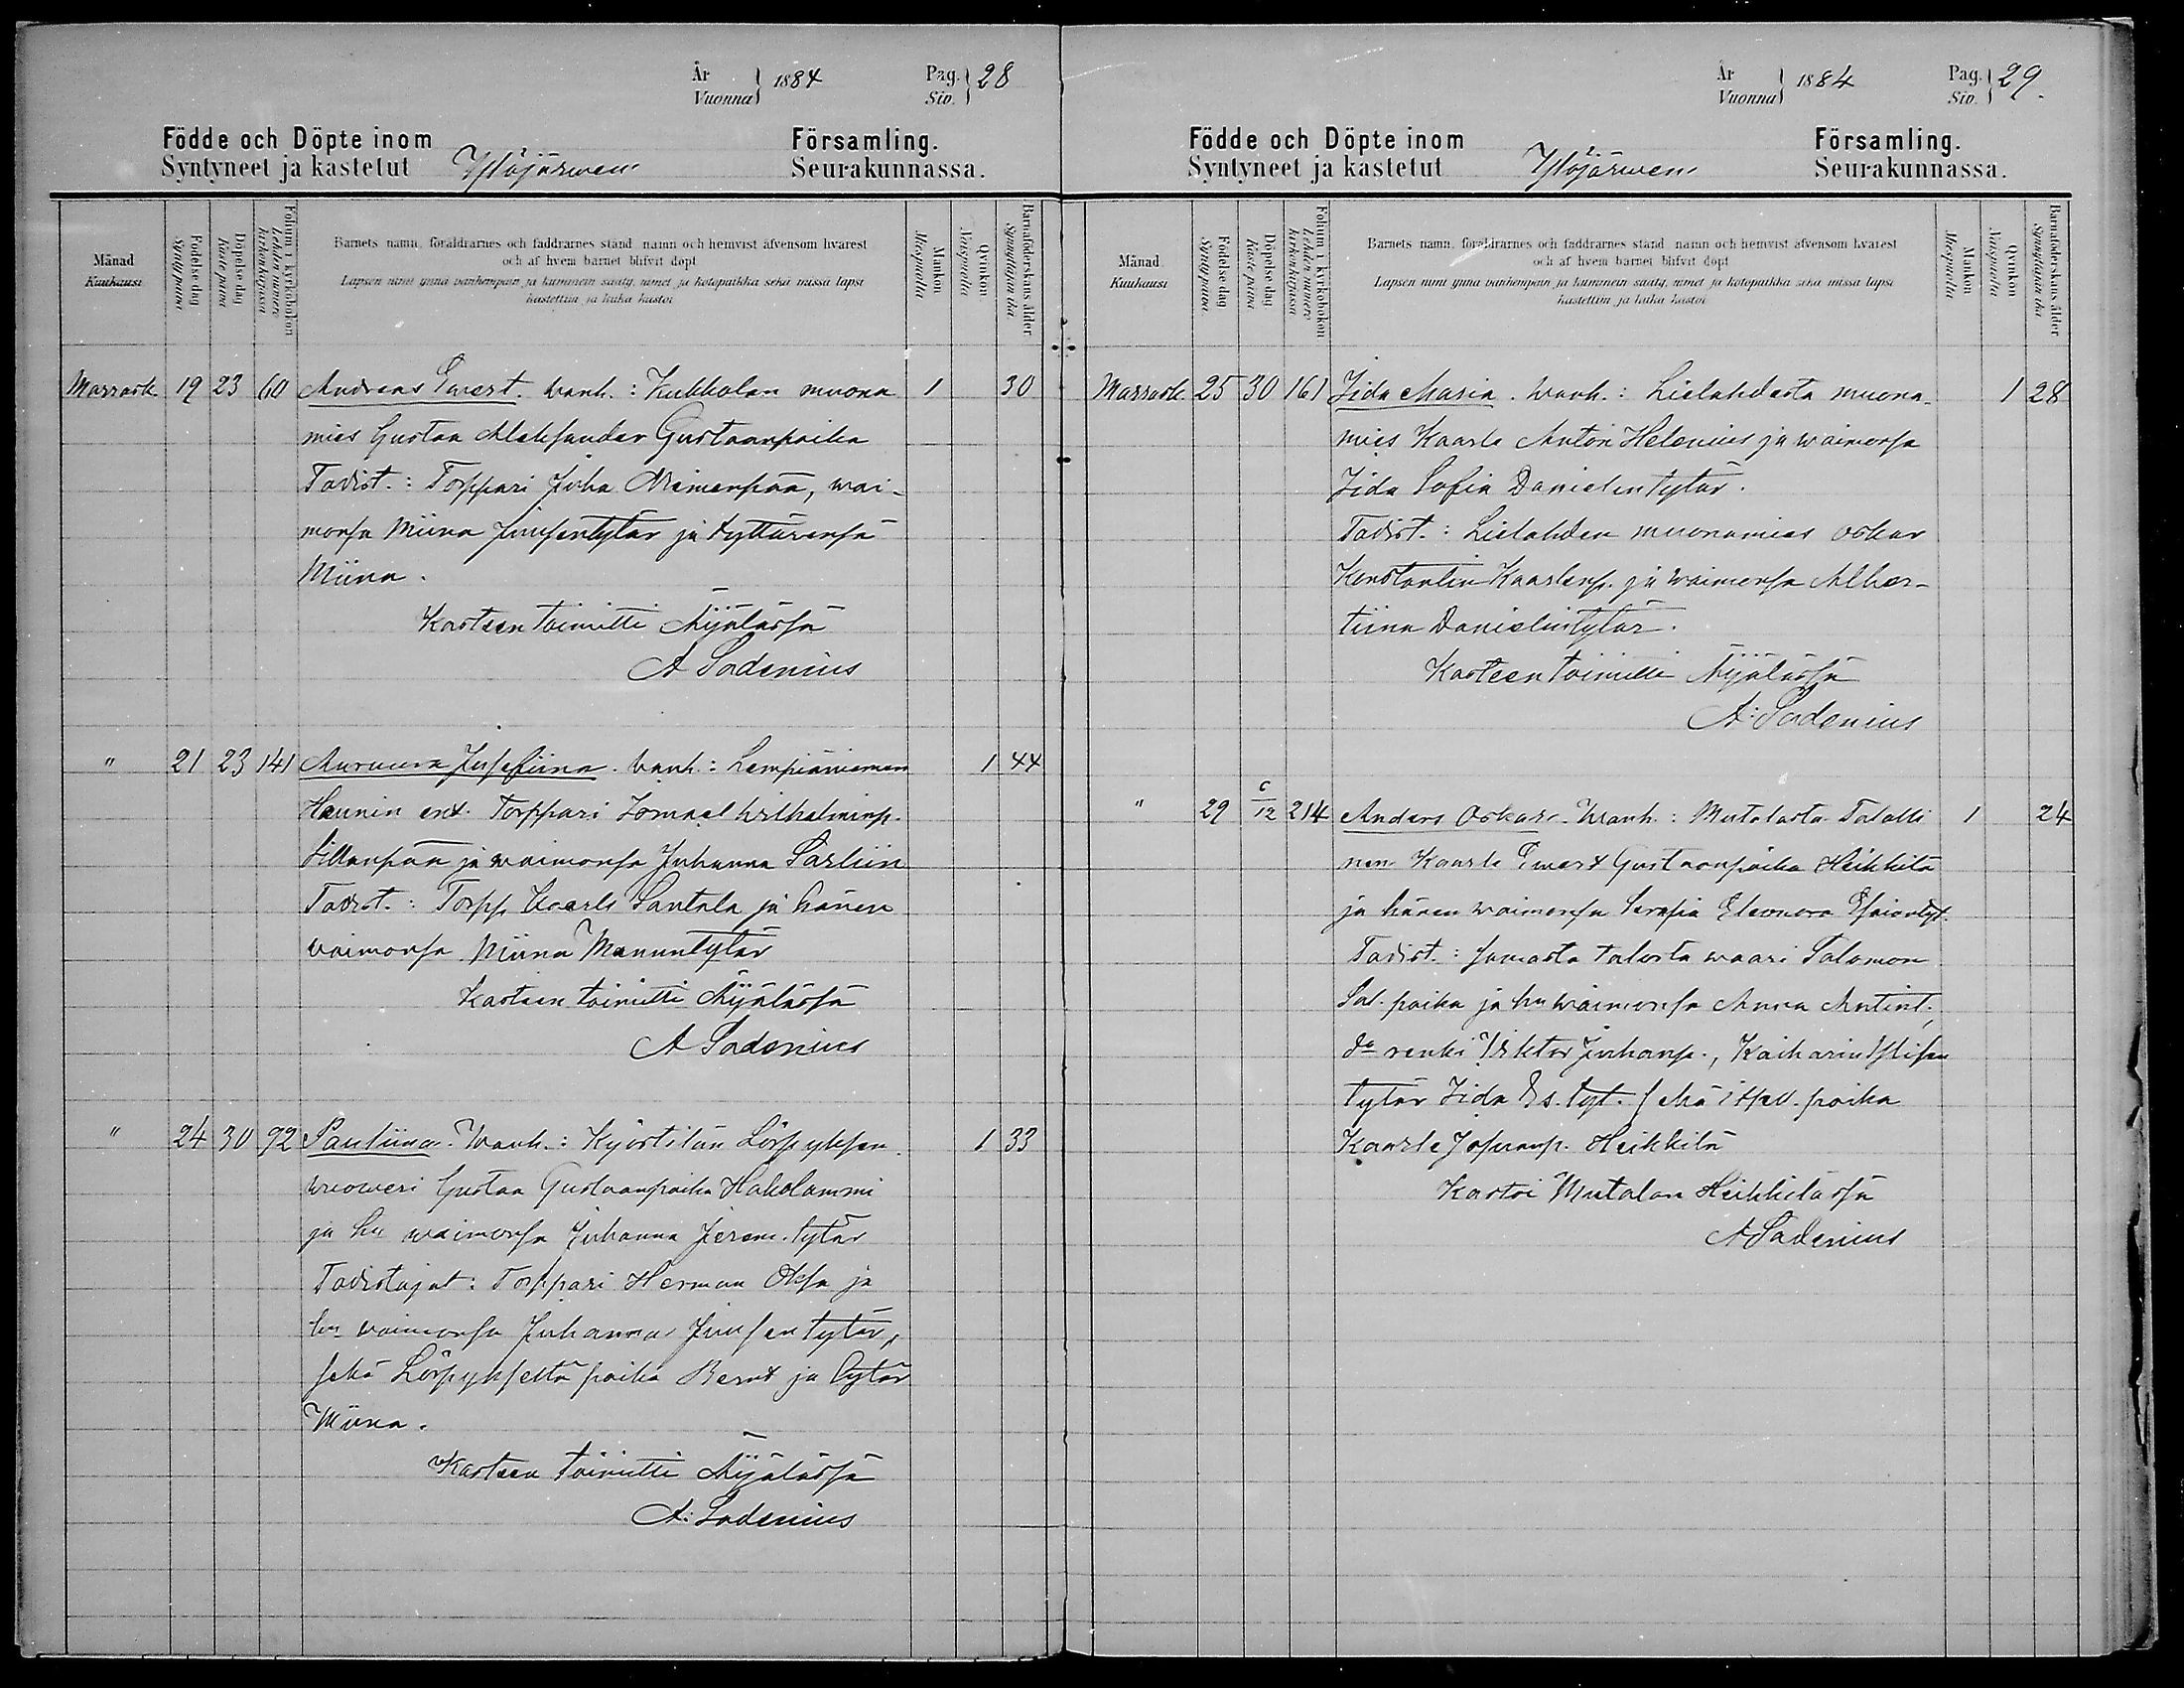 År
Vuonna } 1884
Pag.
Siv. } 28
Födde och Döpte inom
Syntyneet ja kastetut Ylöjärwen
Församling.
Seurakunnassa.
Månad
Kuukausi
Födelse dag
Syntypäivä
Döpelse dag
Kaste päivä
Folium i kyrkoboken
Lehden numero kirkonkirjassa
Barnets namn, föräldrarnes och faddrarnes stånd namn och hemvist äfvensom hvarest
och af hvem barnet blifvit döpt
Lapsen nimi ynnä vanhempain ja kummein sääty, nimet ja kotopaikka sekä missä lapsi
kastettiin ja kuka kastoi
Mankön
Miespuolta
Qvinkön
Vaispuolta
Barnaföderskans ålder
Synnyttäjän ikä
Marrask. 19 23 60 Andreas Ewert. Wanh.: Kukkolan muona 1 30
mies Gustaa Aleksander Gustaanpoika
Todist.: Torppari Juha Niemenpää, wai-
monsa Miina Juusentytär ja tyttärensä
Miina.
Kasteen toimitti Äijälässä
A Sadenius
" 21 23 141 Auruura Jusefiina. Wanh.: Lempiäniemen 1 44
Hannin ent. Torppari Ismael Wilhelminp.
Sillanpää ja waimonsa Juhanna Sarliin
Todist.: Torpp. Kaarle Santala ja hänen
waimonsa Miina Manuntytär
Kasteen toimitti Äijälässä
A Sadenius
" 24 30 92 Pauliina. Wanh.: Kyöstilän Lörpyksen 1 33
wuoweri Gustaa Gustaanpoika Hakolammi
ja hn waimonsa Juhanna Jerem. tytär
Todistajat: Torppari Herman Oksa ja
hn waimonsa Juhanna Juusentytär,
sekä Lörpyksestä poika Bernt ja tytär
Miina.
Kasteen toimitti Äijälässä
A: Sadenius
År
Vuonna } 1884
Pag.
Siv. } 29.
Födde och Döpte inom
Syntyneet ja kastetut Ylöjärwen
Församling.
Seurakunnassa.
Månad
Kuukausi
Födelse dag
Syntypäivä
Döpelse dag
Kaste päivä
Folium i kyrkoboken
Lehden numero kirkonkirjassa
Barnets namn, föräldrarnes och faddrarnes stånd namn och hemvist äfvensom hvarest
och af hvem barnet blifvit döpt
Lapsen nimi ynnä vanhempain ja kummein sääty, nimet ja kotopaikka sekä missä lapsi
kastettiin ja kuka kastoi
Mankön
Miespuolta
Qvinkön
Vaispuolta
Barnaföderskans ålder
Synnyttäjän ikä
Marrask. 25 30 161 Iida Maria. Wanh.: Lielahdesta muona- 1 28
mies Kaarle Anton Helenius ja waimonsa
Iida Sofia Danielintytär.
Todist.: Lielahden muonamies Oskar
Konstantin Kaarlenp. ja waimonsa Alber-
tiina Danielintytär.
Kasteen toimitti Äijälässä
A: Sadenius
" 29 6/12 214 Anders Oskari. Wanh.: Mutalasta Talolli 1 24
nen Kaarle Ewert Gustaanpoika Heikkilä
ja hänen waimonsa Serafia Eleonora Esaiantyt.
Todist.: Samasta talosta waari Salomon
Sal. poika ja hn waimonsa Anna Antint.,
do renki Wiktor Juhanp.,
tytär Iida Es. tyt. sekä poika
Kaarle Heikkilä
Kastoi Mutalan Heikkilässä
A Sadenius